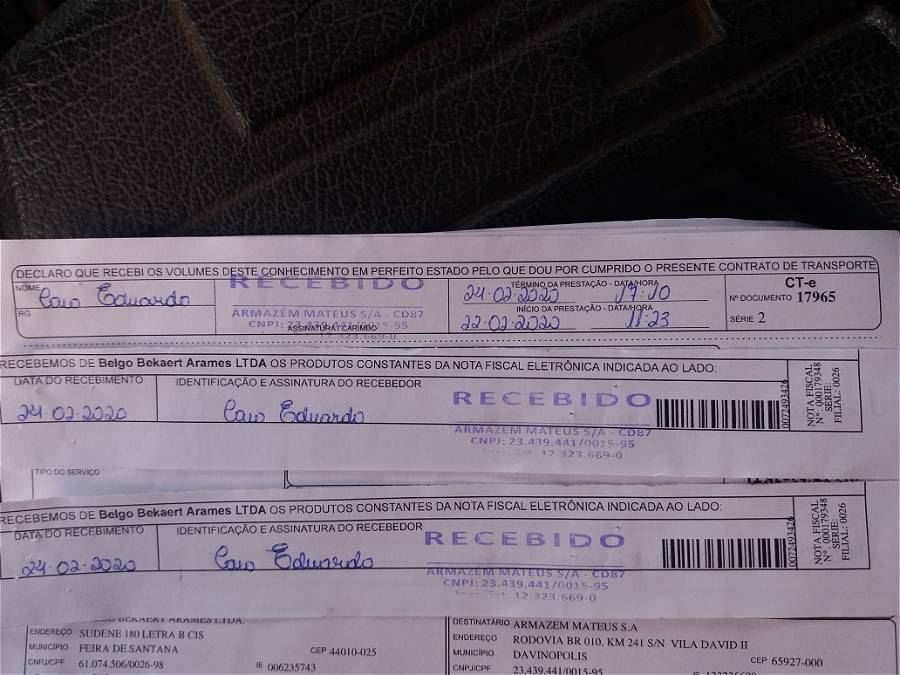 DECLARO QUE RECEBI OS VOLUMES DESTE CONHECIMENTO EM PERFEITO ESTADO PELO QUE DOU POR CUMPRIDO O PRESENTE CONTRATO DE TRANSPORTE
NOME Caio Eduardo
RG
RECEBIDO
ARMAZÉM MATEUS S/A - CD87
CNPJ: 23.439.441/0015-95
ASSINATURA / CARIMBO
12.323.669-0
TÉRMINO DA PRESTAÇÃO - DATA/HORA
24-02-2020 19:10
INÍCIO DA PRESTAÇÃO - DATA/HORA
22-02-2020 11:23
CT-e
Nº DOCUMENTO 17965
SÉRIE 2
RECEBEMOS DE Belgo Bekaert Arames LTDA OS PRODUTOS CONSTANTES DA NOTA FISCAL ELETRÔNICA INDICADA AO LADO:
DATA DO RECEBIMENTO
24-02-2020
IDENTIFICAÇÃO E ASSINATURA DO RECEBEDOR
Caio Eduardo
RECEBIDO
ARMAZÉM MATEUS S/A - CD87
CNPJ: 23.439.441/0015-95
12.323.669-0
0072493426
NOTA FISCAL
Nº. 000179348
SERIE:
FILIAL: 0026
TIPO DO SERVIÇO
RECEBEMOS DE Belgo Bekaert Arames LTDA OS PRODUTOS CONSTANTES DA NOTA FISCAL ELETRÔNICA INDICADA AO LADO:
DATA DO RECEBIMENTO
24-02-2020
IDENTIFICAÇÃO E ASSINATURA DO RECEBEDOR
Caio Eduardo
RECEBIDO
ARMAZÉM MATEUS S/A - CD87
CNPJ: 23.439.441/0015-95
12.323.669-0
0072493426
NOTA FISCAL
Nº. 000179348
SERIE:
FILIAL: 0026
BEKAERT ARAMES LTDA.
ENDEREÇO SUDENE 180 LETRA B CIS
MUNICÍPIO FEIRA DE SANTANA CEP 44010-025
CNPJ/CPF 61.074.506/0026-98 IE 006235743
DESTINATÁRIO ARMAZEM MATEUS S.A
ENDEREÇO RODOVIA BR 010, KM 241 S/N VILA DAVID II
MUNICÍPIO DAVINOPOLIS CEP 65927-000
CNPJ/CPF 23.439.441/0015-95 IE